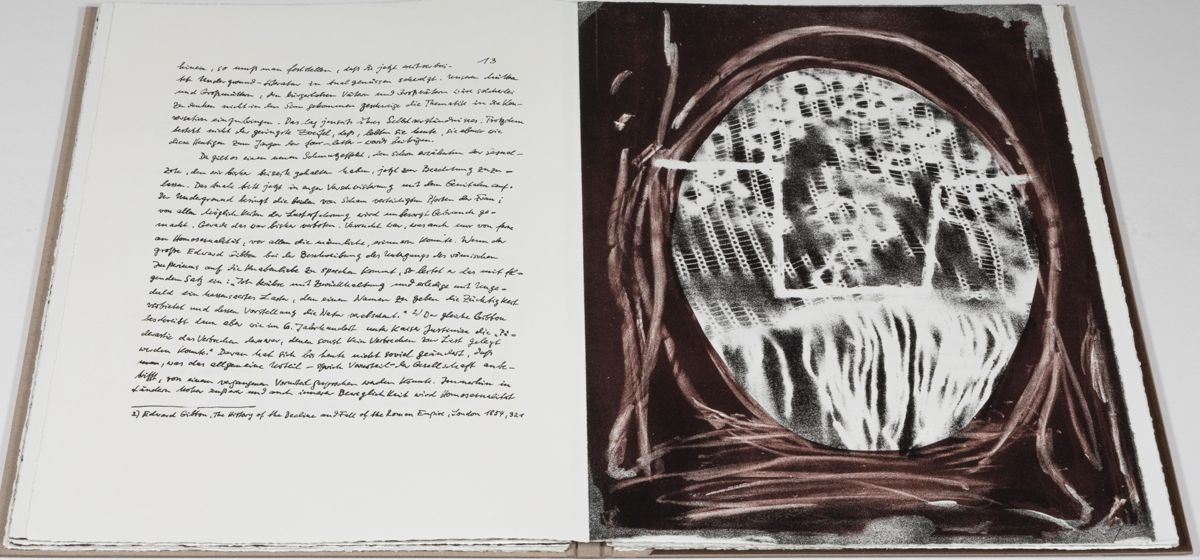 13
hinein, so muß man feststellen, daß sie jetzt mit verbrei-
tet Underground-Literatur zu Analgenüssen schweigt. Unseren Müttern
und Großmüttern, den bürgerlichen Vätern und Großvätern wäre solcherlei
zu denken nicht in den Sinn gekommen geschweige die Thematik in die Kon-
versation einzubringen. Das lag jenseits ihres Selbstverständnisses. Trotzdem
besteht nicht der geringste Zweifel, daß, lebten sie heute, sie ebenso wie
diese Heutigen zum Jargon der four-letter-words beitrügen.
Da gilt es einen neuen Schmutzeffekt, den schon erwähnten der
Zote, den wir bisher beiseite gehalten haben, jetzt zur Beachtung zuzu-
lassen. Das Anale tritt jetzt in enger Verschwisterung mit dem Genitalen auf.
Der Underground bringt die beiden von Scham verteidigten Pforten der Frau;
von allen Möglichkeiten der Lust wird unbesorgt Gebrauch ge-
macht. Gerade das war bisher verboten. Verrucht war, was auch nur von fern
an Homosexualität, vor allem die männliche, erinnern konnte. Wenn der
große Edward Gibbon bei der Beschreibung des Untergangs des römischen
Imperiums auf die Knabenliebe zu sprechen kommt, so leitet er das mit fol-
gendem Satz ein: "Ich berühre mit Zurückhaltung und erledige mit Unge-
duld ein hassenswertes Laster, dem einen Namen zu geben die Züchtigkeit
verbietet und dessen Vorstellung die Natur verabscheut." 2) Der gleiche Gibbon
beschreibt dann aber wie im 6. Jahrhundert unter Kaiser Justinian die "Pä-
derastie das Verbrechen derer war, denen sonst kein Verbrechen zur Last gelegt
werden konnte." Daran hat sich bis heute nicht soviel geändert, daß
man, was das allgemeine Urteil - sprich Vorurteil - der Gesellschaft anbe-
trifft, von einem vergangenen Vorurteil gesprochen werden könnte. Immerhin in
Ländern hoher äußerer und auch innerer Beweglichkeit wird Homosexualität
2) Edward Gibbon, The History of the Decline and Fall of the Roman Empire, London 1854, 321